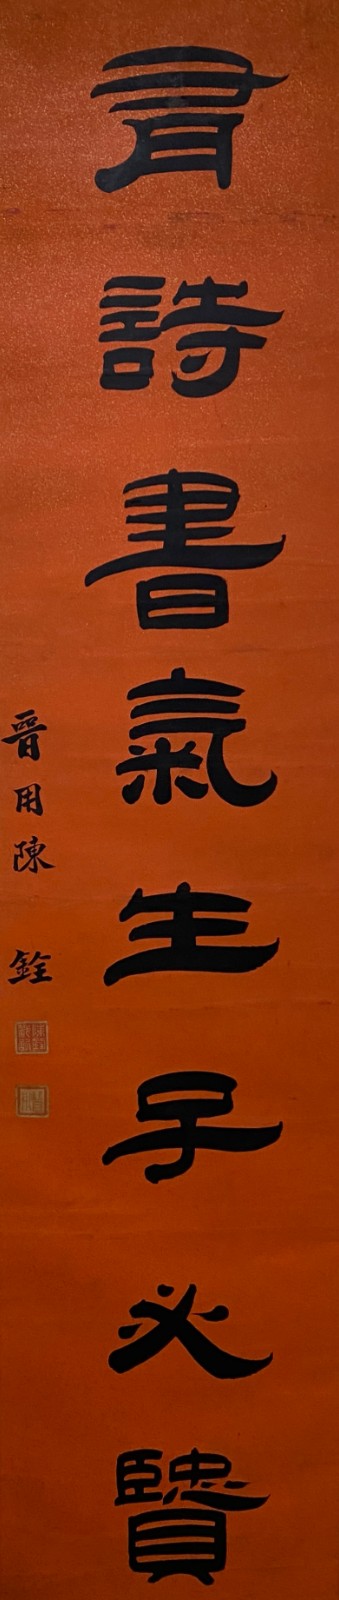 有詩書氣生子必賢
晉用陳銓